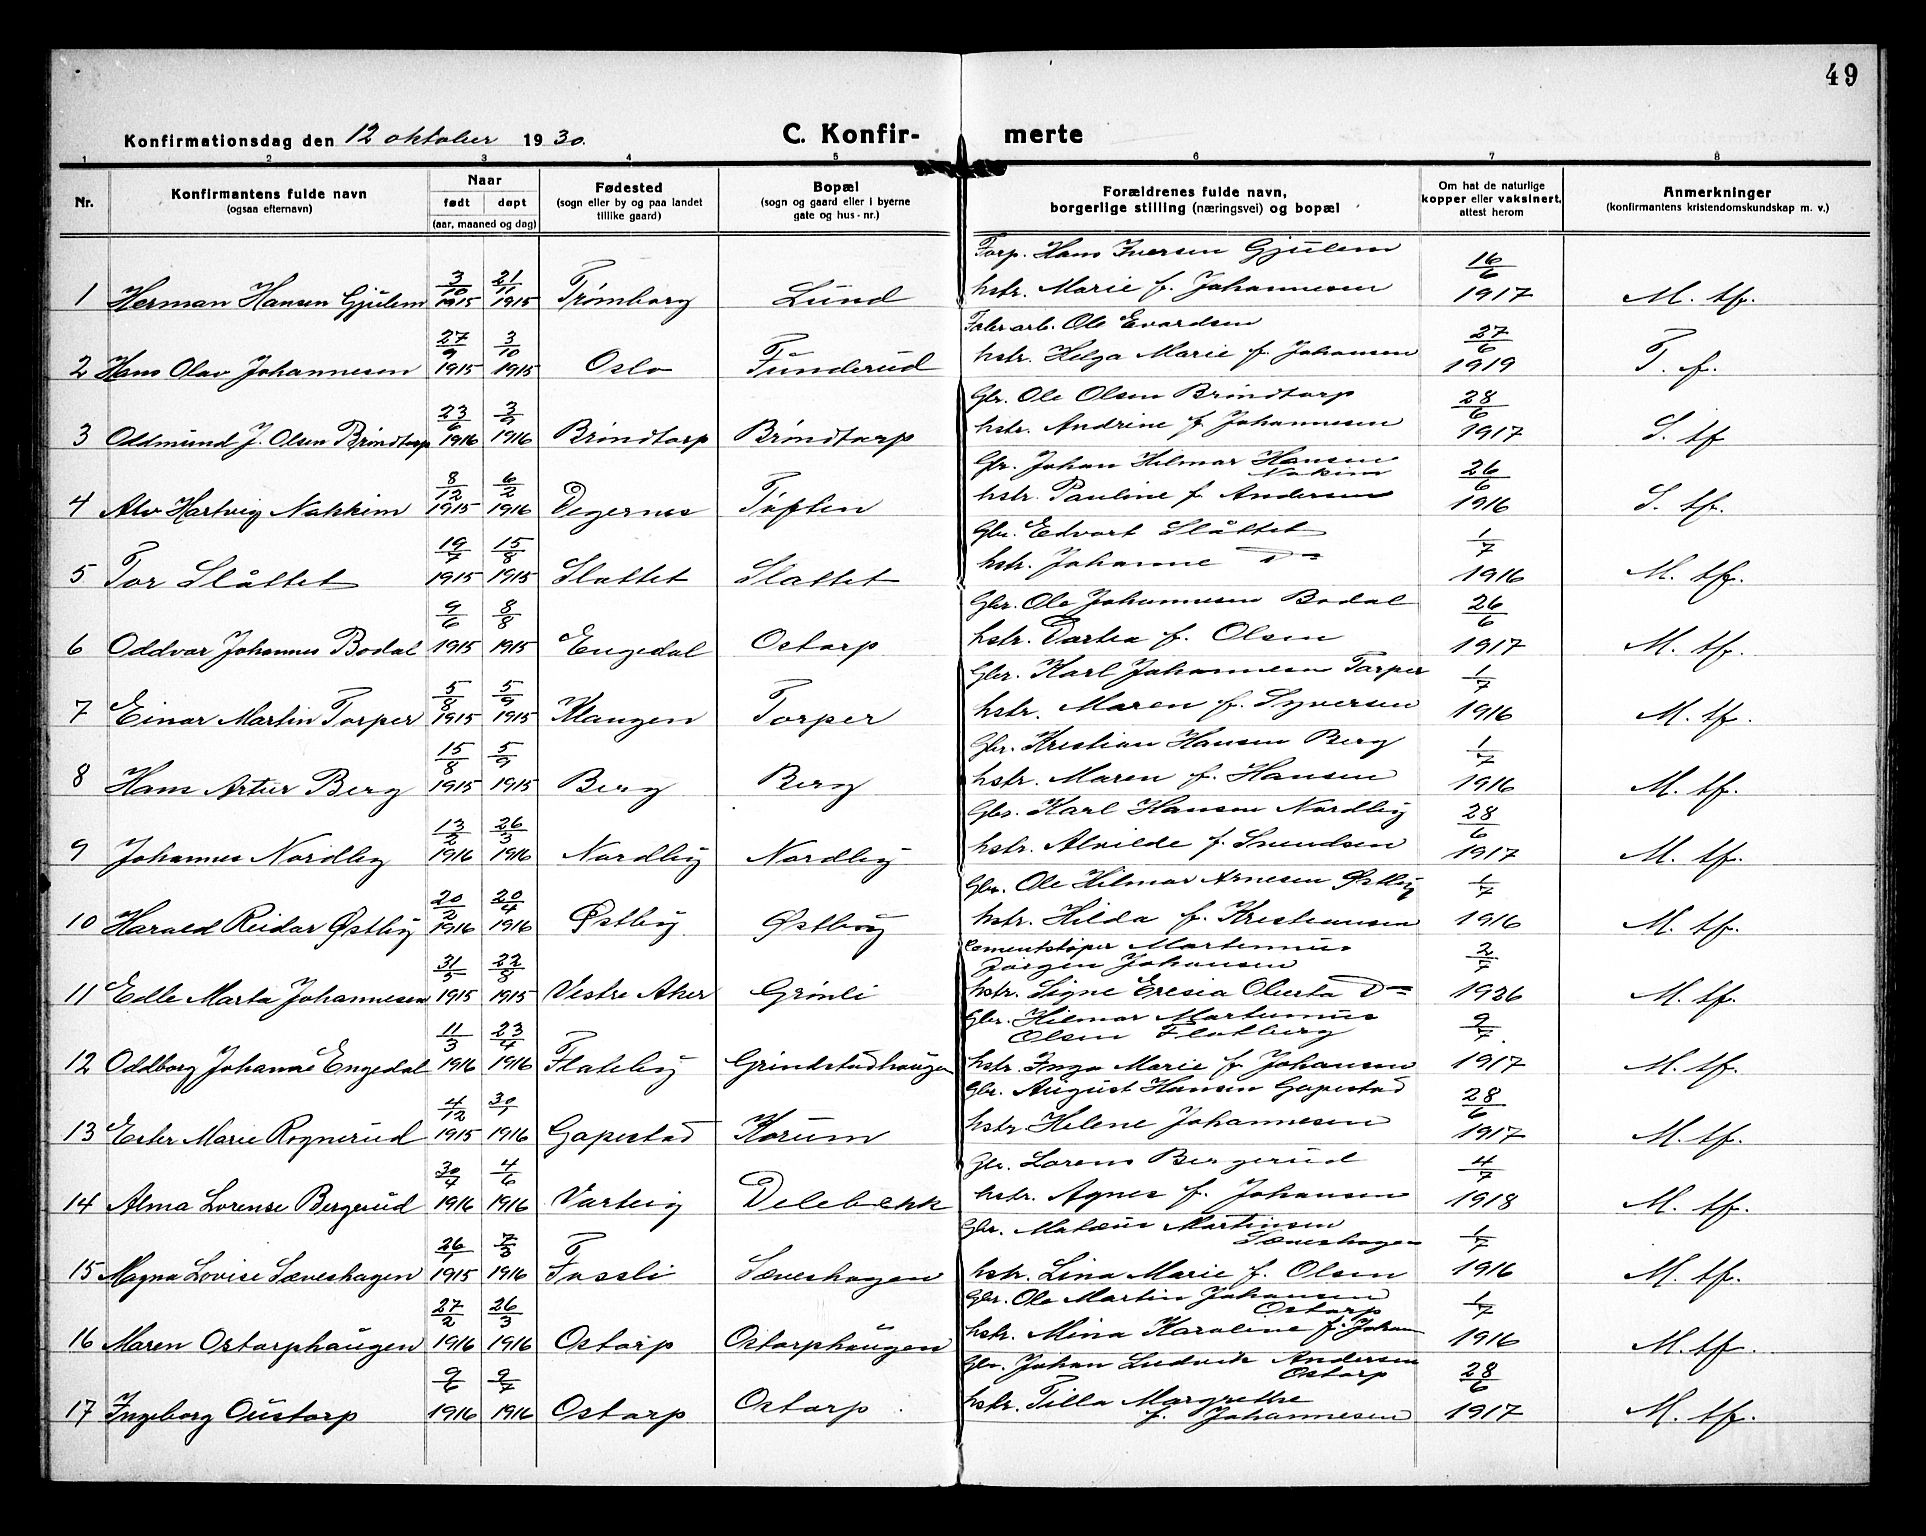 49
Konfirmationsdag den 12 oktober 1930.
C. Konfirmerte
1 2 3 4 5 6 7 8
Nr.
Konfirmantens fulde navn
(ogsaa efternavn)
Naar
født døpt
(aar, maaned og dag)
Fødested
(sogn eller by og paa landet
tillike gaard)
Bopæl
(sogn og gaard eller i byerne
gate og hus-nr.)
Forældrenes fulde navn,
borgerlige stilling (næringsvei) og bopæl
Om hat de naturlige
kopper eller vaksinert,
attest herom
Anmerkninger
(konfirmantens kristendomskundskap m. v.)
Forp. Hans Iversen Gjulem
1 Herman Hansen Gjulem 3/10 1915 21/11 1915 Trømborg Lund hstr. Marie f. Johannesen 16/6 1917 M. tf.
Fabr arb. Ole Evardsen
2 Hans Olav Johannesen 27/9 1915 3/10 1915 Oslo Funderud hstr. Helga Marie f. Johansen 27/6 1919 T. f.
Gbr. Ole Olsen Brøndtorp
3 Oddmund J. Olsen Brøndtorp 23/6 1916 3/9 1916 Brøndtorp Brøndtorp hstr. Andrine f. Johannesen 28/6 1917 S. tf
Gbr. Johan Hilmar Hansen
Nakkim
4 Alv Hartvig Nakkim 8/12 1915 6/2 1916 Degernes Tøften hstr. Pauline f. Andersen 26/6 1916 S. tf.
Gbr. Edvart Slåttet
5 Tor Slåttet 19/7 1915 15/8 1915 Slattet Slattet hstr. Johanne D= 1/7 1916 M. tf.
Gbr. Ole Johannesen Bodal
6 Oddvar Johannes Bodal 9/6 1915 8/8 1915 Engedal Ostorp hstr. Dortea f. Olsen 26/6 1917 M. tf.
Gbr. Karl Johannesen Torper
7 Einar Martin Torper 5/8 1915 5/9 1915 Mangen Torper hstr. Maren f. Syversen 1/7 1916 M. tf.
Gbr. Kristian Hansen Berg
8 Hans Artur Berg 15/8 1915 5/9 1915 Berg Berg hstr. Maren f. Hansen 1/7 1916 M. tf.
Gbr. Karl Hansen Nordby
9 Johannes Nordby 13/2 1916 26/3 1916 Nordby Nordby hstr. Alvilde f. Svendsen 28/6 1917 M. tf.
Gbr. Ole Hilmar Arnesen Østby
10 Harald Reidar Østby 20/2 1916 20/4 1916 Østby Østby hstr. Hilda f. Kristiansen 1/7 1916 M. tf.
Cementstøper Martinius
Jørgen Johansen
11 Edle Marta Johannesen 31/5 1915 22/8 1915 Vestre Aker Grönli hstr. Signe Eresia Oluvta D= 2/7 1926 M. tf.
Gbr. Hilmar Martinius
Olsen Flatberg
12 Oddborg Johanne Engedal 11/3 1916 23/4 1916 Flateby Grindstadhaugen hstr. Inga Marie f. Johansen 9/7 1917 M. tf.
Gbr. August Hansen Gapestad
13 Ester Marie Rognerud 4/12 1915 30/1 1916 Gapestad Korum hstr. Helene Johannesen 28/6 1917 M. tf.
Gbr. Lorens Bergerud
14 Alma Lorense Bergerud 30/4 1916 4/6 1916 Varteig Delebekk hstr. Agnes f. Johansen 4/7 1918 M. tf.
Gbr. Mateus Martinsen
Sæveshagen
15 Magna Lovise Sæveshagen 26/1 1915 7/3 1916 Fossli Sæveshagen hstr. Lina Marie f. Olsen 1/7 1916 M. tf.
Gbr. Ole Martin Johansen
Ostorp
16 Maren Ostorphaugen 27/2 1916 26/3 1916 Ostorp Ostorphaugen hstr. Mina Karoline f. Johan 1/7 1916 M. tf.
Gbr. Johan Ludvik Andersen
Ostorp
17 Ingeborg Oustorp 9/6 1916 9/7 1916 Ostorp Ostorp. hstr. Tilla Margrethe 28/6 1917 M. tf.
f. Johannesen